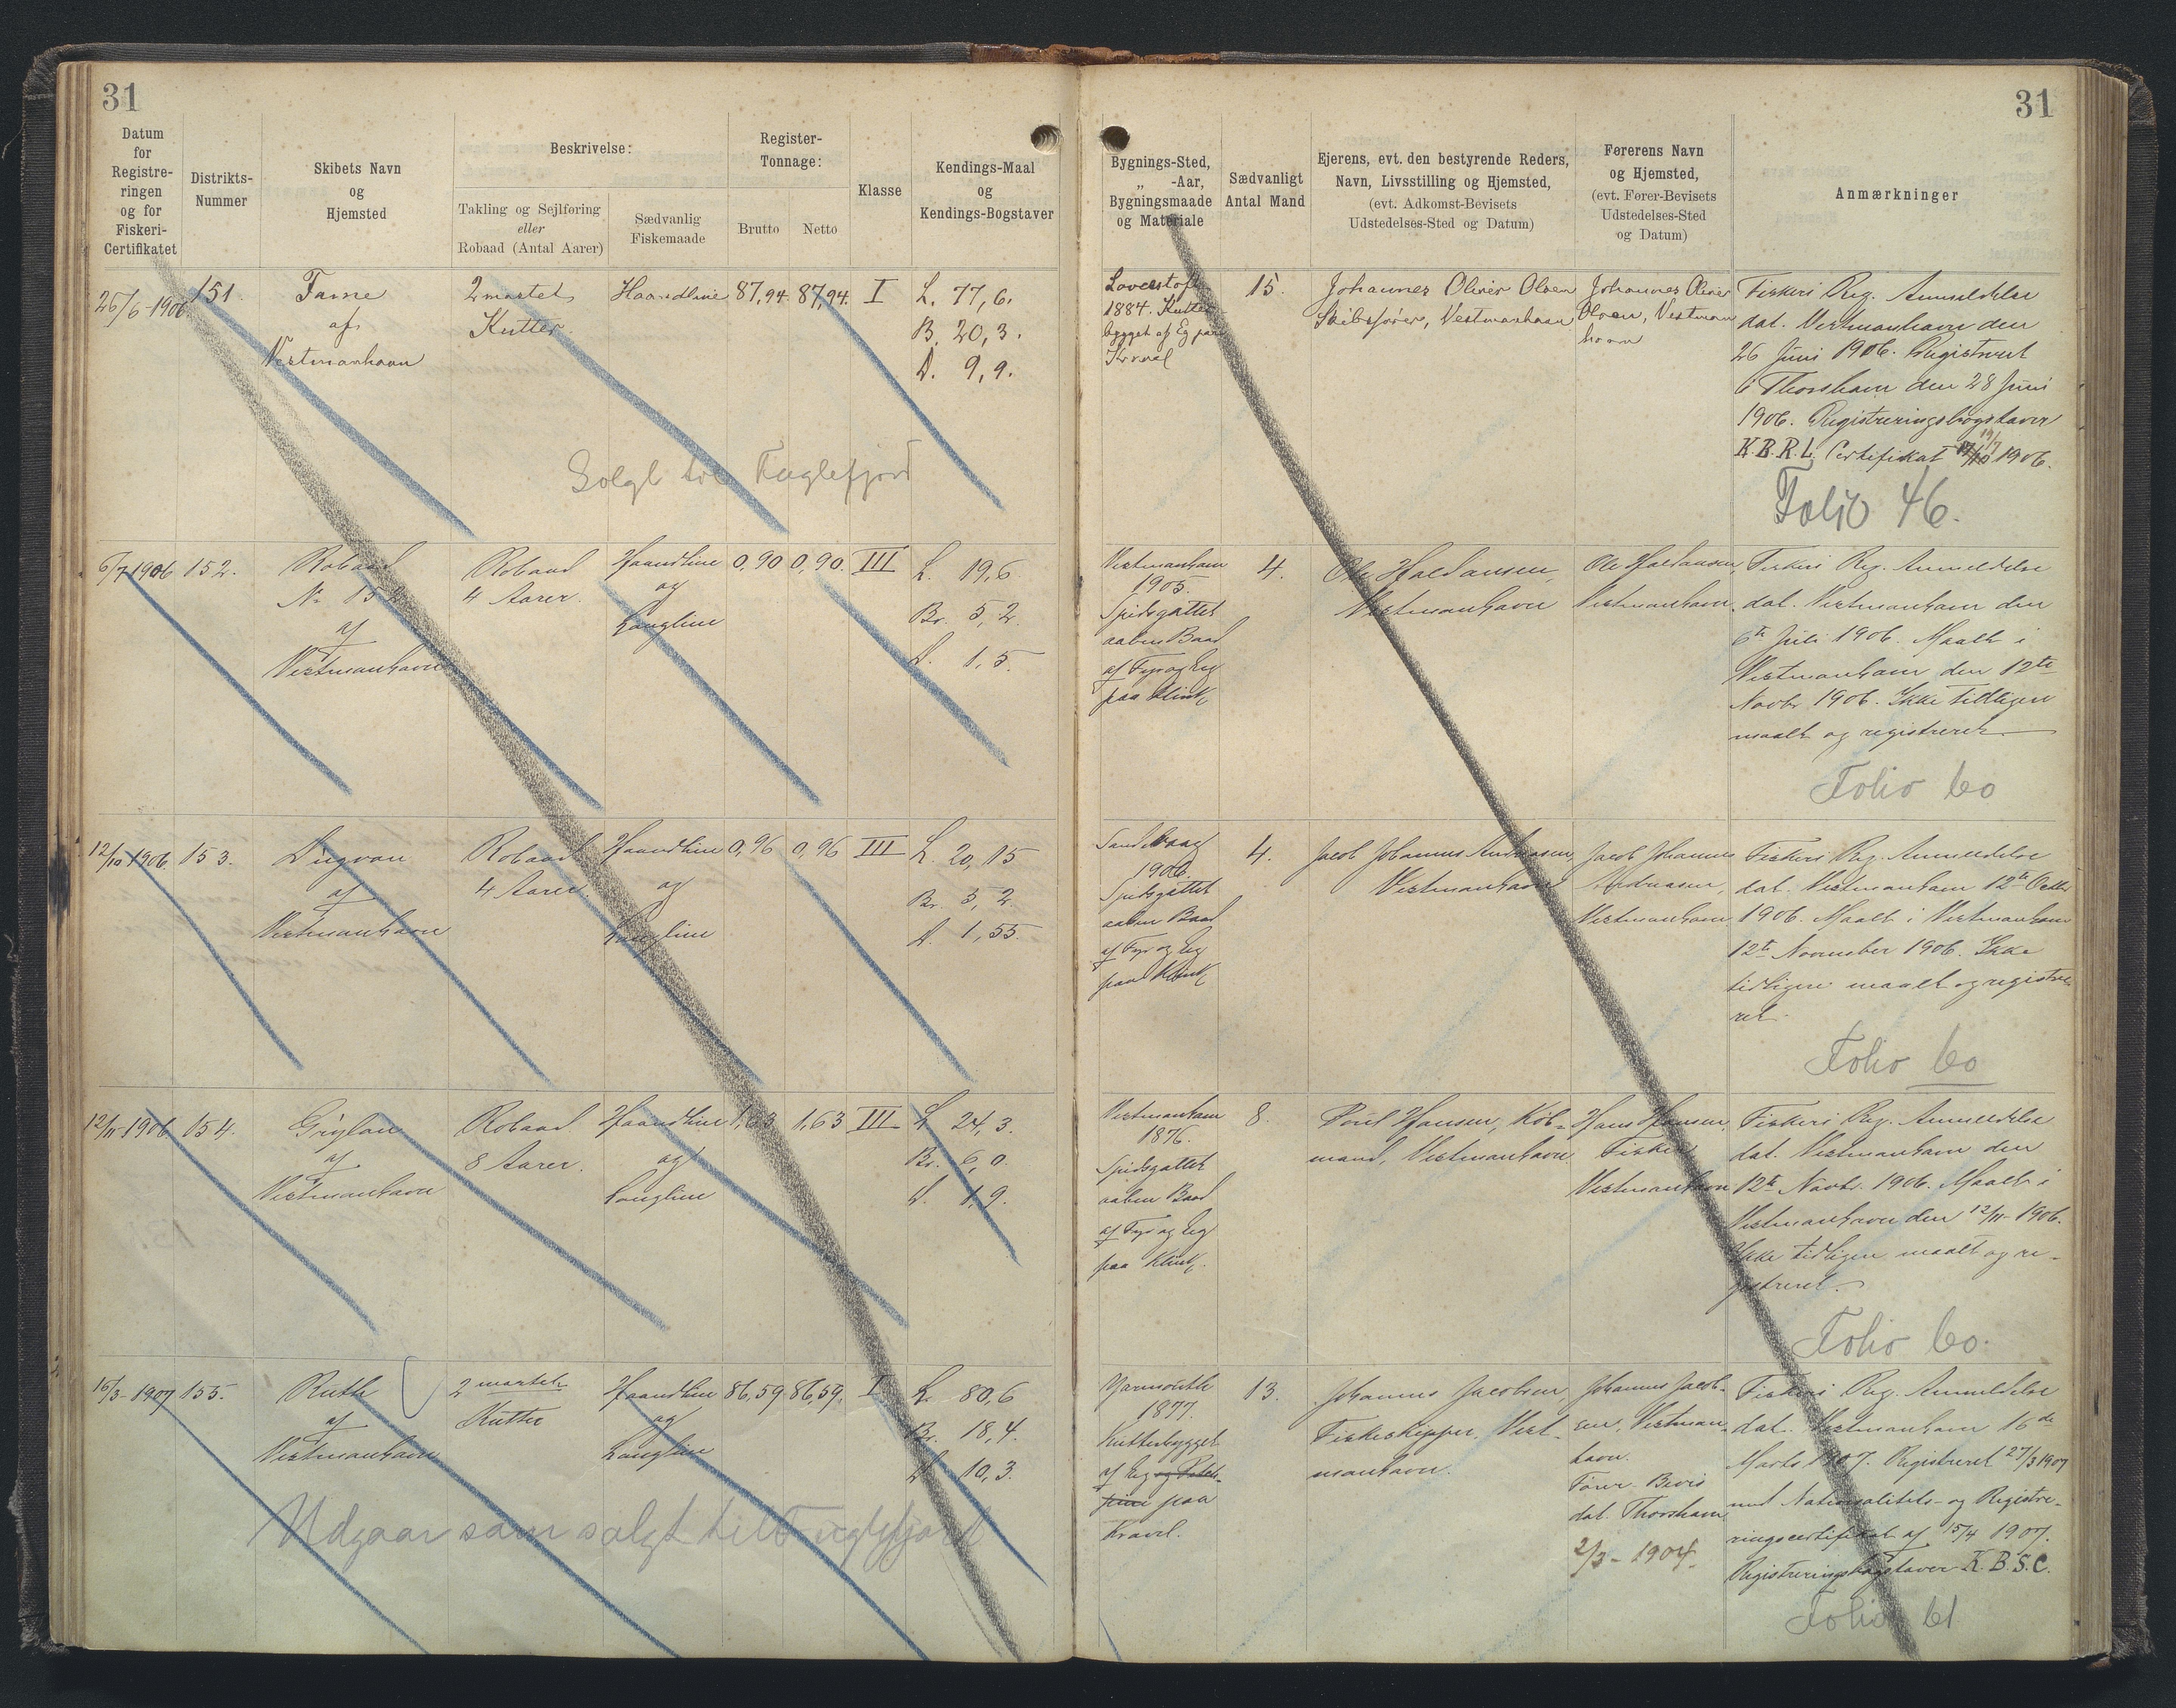 31
31
Datum
for
Registre-
ringen
og for
Fiskeri-
Certifikatet
Distrikts-
Nummer
Skibets Navn
og
Hjemsted
Beskrivelse:
Takling og Sejlføring
eller
Robaad (Antal Aarer)
Sædvanlig
Fiskemaade
Register-
Tonnage:
Brutto
Netto
Klasse
Kendings-Maal
og
Kendings-Bogstaver
Bygnings-Sted,
„ -Aar,
Bygningsmaade
og Materiale
Sædvanligt
Antal Mand
Ejerens, evt. den bestyrende Reders,
Navn, Livsstilling og Hjemsted,
(evt. Adkomst-Bevisets
Udstedelses-Sted og Datum)
Førerens Navn
og Hjemsted,
(evt. Fører-Bevisets
Udstedelses-Sted
og Datum)
Anmærkninger
26/6-1906
151
af
Vestmanhavn
2 mastet
Kutter
Haandline
87,94.
87,94.
I
L. 77,6.
B. 20,3.
D. 9,9.
Solgt til Fuglefjord
1884. Kutter
bygget af Eg paa
15.
Johannes Olivir Olsen
Skibsfører, Vestmanhavn
Johannes Olivir
Olsen, Vestman
havn
Fiskeri Reg. Anmeldelse
dat. Vestmanhavn den
26 Juni 1906. Registreret
i Thorshavn den 28 Juni
1906. Registreringsbogstaver
K.B.R.L. Certifikat 1906.
Folio 46.
6/7 1906
152.
Robaad
No 152
af
Vestmanhavn
Robaad
4 Aarer.
Haandline
og
Langline
0,90
0,90.
III
L. 19,6
Br. 5,2.
D. 1,5.
Vestmanhavn
1905.
Spidsgattet
aaben Baad
af Fyr og Eg
paa Klink
4.
Ole Joensen,
Vestmanhavn
Vestmanhavn.
Fiskeri Reg. Anmeldelse
dat. Vestmanhavn den
6te Juli 1906. Maalt i
Vestmanhavn den 12te
Novbr 1906. Ikke tidligere
maalt og registreret
Folio 60
12/10 1906
153.
af
Vestmanhavn
Robaad
4 Aarer
Haandline
og
Langline
0,96
0,96
III
L. 20,15
Br. 5,2.
D. 1,55.
1906.
Spidsgattet
aaben Baad
af Fyr og Eg
paa Klink
4.
Jacob Johannes Andreasen,
Vestmanhavn
Jacob Johannes
Andreasen,
Vestmanhavn
Fiskeri Reg. Anmeldelse
dat. Vestmanhavn 12te Octbr
1906. Maalt i Vestmanhavn
12te November 1906. Ikke
tidligere maalt og registre-
ret.
Folio 60
12/11-1906
154.
af
Vestmanhavn
Robaad
8 Aarer.
Haandline
og
Langline
1,63
1,63
III
L. 24,3.
Br. 6,0.
D. 1,9.
Vestmanhavn
1876.
Spidsgattet
aaben Baad
af Fyr og Eg
paa Klink.
8.
Poul Hansen, Køb-
mand, Vestmanhavn
Hans Hansen,
Fisker
Vestmanhavn
Fiskeri Reg. Anmeldelse
dat. Vestmanhavn den
12te Novbr. 1906. Maalt i
Vestmanhavn den 12/11-1906.
Ikke tidligere maalt og re-
gistreret.
Folio 60.
16/3-1907
155.
Ruth
af
Vestmanhavn
2 mastet
Kutter
Haandline
og
Langline
86,59
86,59.
I
L. 80,6
Br. 18,4.
D. 10,3.
Udgaar som solgt til Fuglefjord
Yarmouth
1877.
Kutterbygget
paa
Kravel.
13.
Johannes Jacobsen,
Fiskeskipper, Vest-
manhavn.
Johannes Jacob-
sen, Vestman-
havn.
Fører Bevis
dat. Thorshavn
2/3-1904.
Fiskeri Reg. Anmeldelse
dat. Vestmanhavn 16de
Marts 1907. Registreret 27/3 1907
med Nationalitets- og Registre-
ringscertifikat af 15/4 1907.
Registreringsbogstaver K.B.S.C.
Folio 61